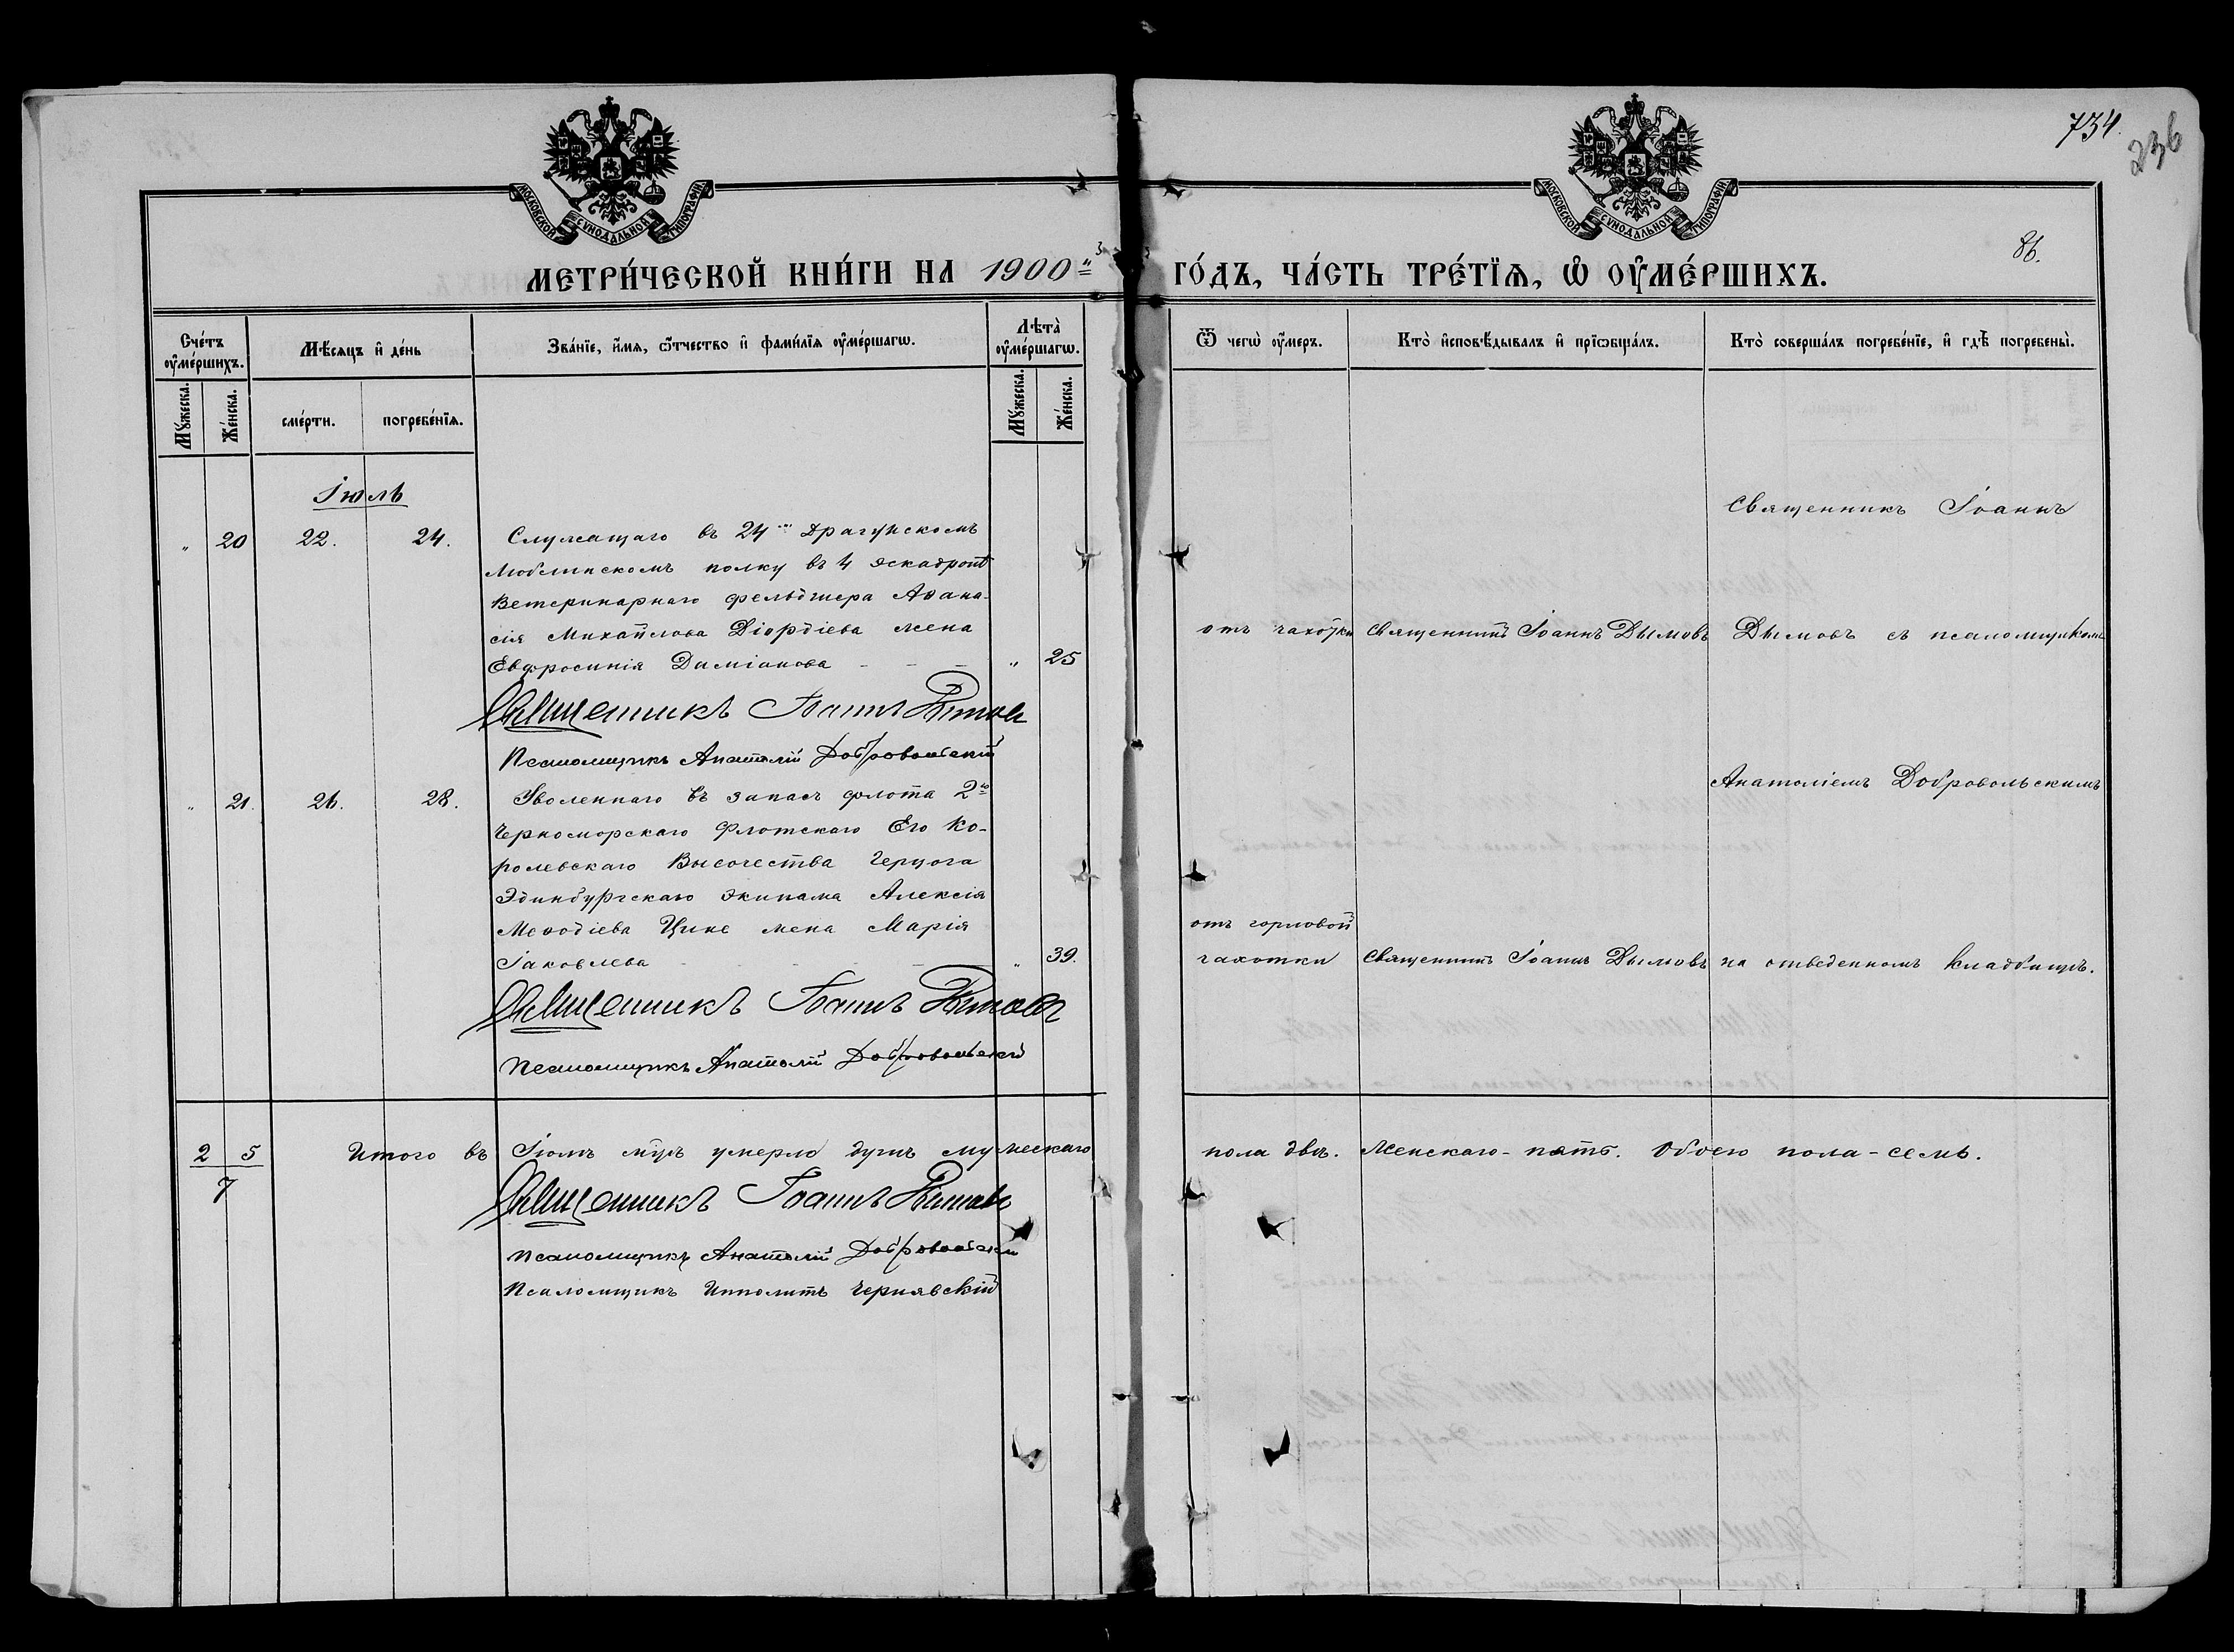 734.
236
МОСКОВСКОЙ СѴНОДАЛЬНОЙ ТИПОГРАФІИ
МОСКОВСКОЙ СѴНОДАЛЬНОЙ ТИПОГРАФІИ
86.
МЕТРИ́ЧЕСКОЙ КНИ́ГИ НА 1900 ГО́ДЪ, ЧА́СТЬ ТРЕ́ТЇѦ, Ѡ҆ ОУ҆МЕ́РШИХЪ.
Сче́тъ оу҆ме́ршихъ.
Мѣ́сяцъ и҆ де́нь
Зва́нїе, и҆́мѧ, ѻ҆́тчество и҆ фами́лїѧ оу҆ме́ршагѡ.
Лѣта̀ оу҆ме́ршагѡ.
Ѿ чегѡ̀ оу҆́меръ.
Кто̀ и҆сповѣ́дывалъ и҆ прїѡбща́лъ.
Кто̀ соверша́лъ погребе́нїе, и҆ гдѣ̀ погребены̀.
Мꙋ́жеска.
Же́нска.
сме́рти.
погребе́нїѧ.
Мꙋ́жеска.
Же́нска.
Іюль
Священникъ Іоаннъ
„ 20 22. 24. Служащаго въ 24 Драгунскомъ
Люблинскомъ полку въ 4 эскадронѣ
Ветеринарнаго фельдшера Аѳана-
сія Михайлова Діордіева жена
отъ чахотки Священникъ Іоаннъ Дымовъ Дымовъ съ псаломщикомъ
Евфросинія Даміанова - - - „ 25
Священникъ Іоаннъ Дымовъ
Псаломщикъ Анатолій Добровольскій
Анатоліемъ Добровольскимъ
„ 21. 26. 28. Уволеннаго въ запасъ флота 2го
Черноморскаго Флотскаго Его Ко-
ролевскаго Высочества Герцога
Эдинбургскаго экипажа Алексія
Меѳодіева Цике жена Марія
отъ горловой
Іаковлева - - - „ 39.
чахотки Священникъ Іоаннъ Дымовъ на отведенномъ кладбищѣ.
Священникъ Іоаннъ Дымовъ
Псаломщикъ Анатолій Добровольскій
2 5 Итого въ Іюлѣ м҃цѣ умерло душъ мужескаго пола двѣ. Женскаго - пять. Обоего пола - семь.
7
Священникъ Іоаннъ Дымовъ
Псаломщикъ Анатолій Добровольскій
Псаломщикъ Ипполитъ Чернявскій